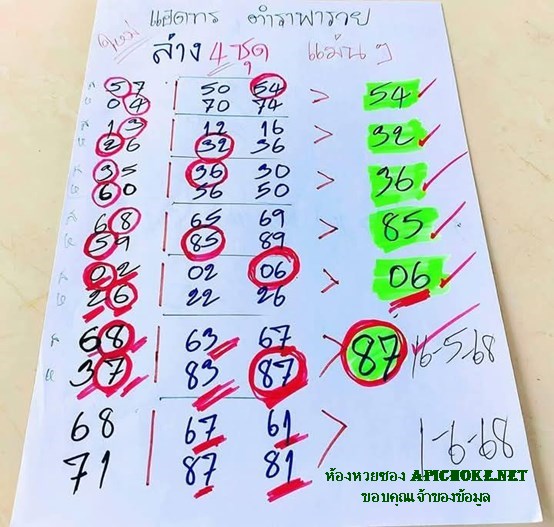 แฝดทร ตำราพารวย
ล่าง 4 ชุด แม่นๆ
57 50 54 > 54
04 70 74
13 12 16 > 32
26 32 36
35 36 30 > 36
60 56 50
68 65 69 > 85
59 85 89
02 02 06 > 06
26 22 26
68 63 67 > 87 16-5-68
37 83 87
68 67 61 > 1-6-68
71 87 81
ห้องหวยซอง APICHOKE.NET
ขอบคุณเจ้าของข้อมูล